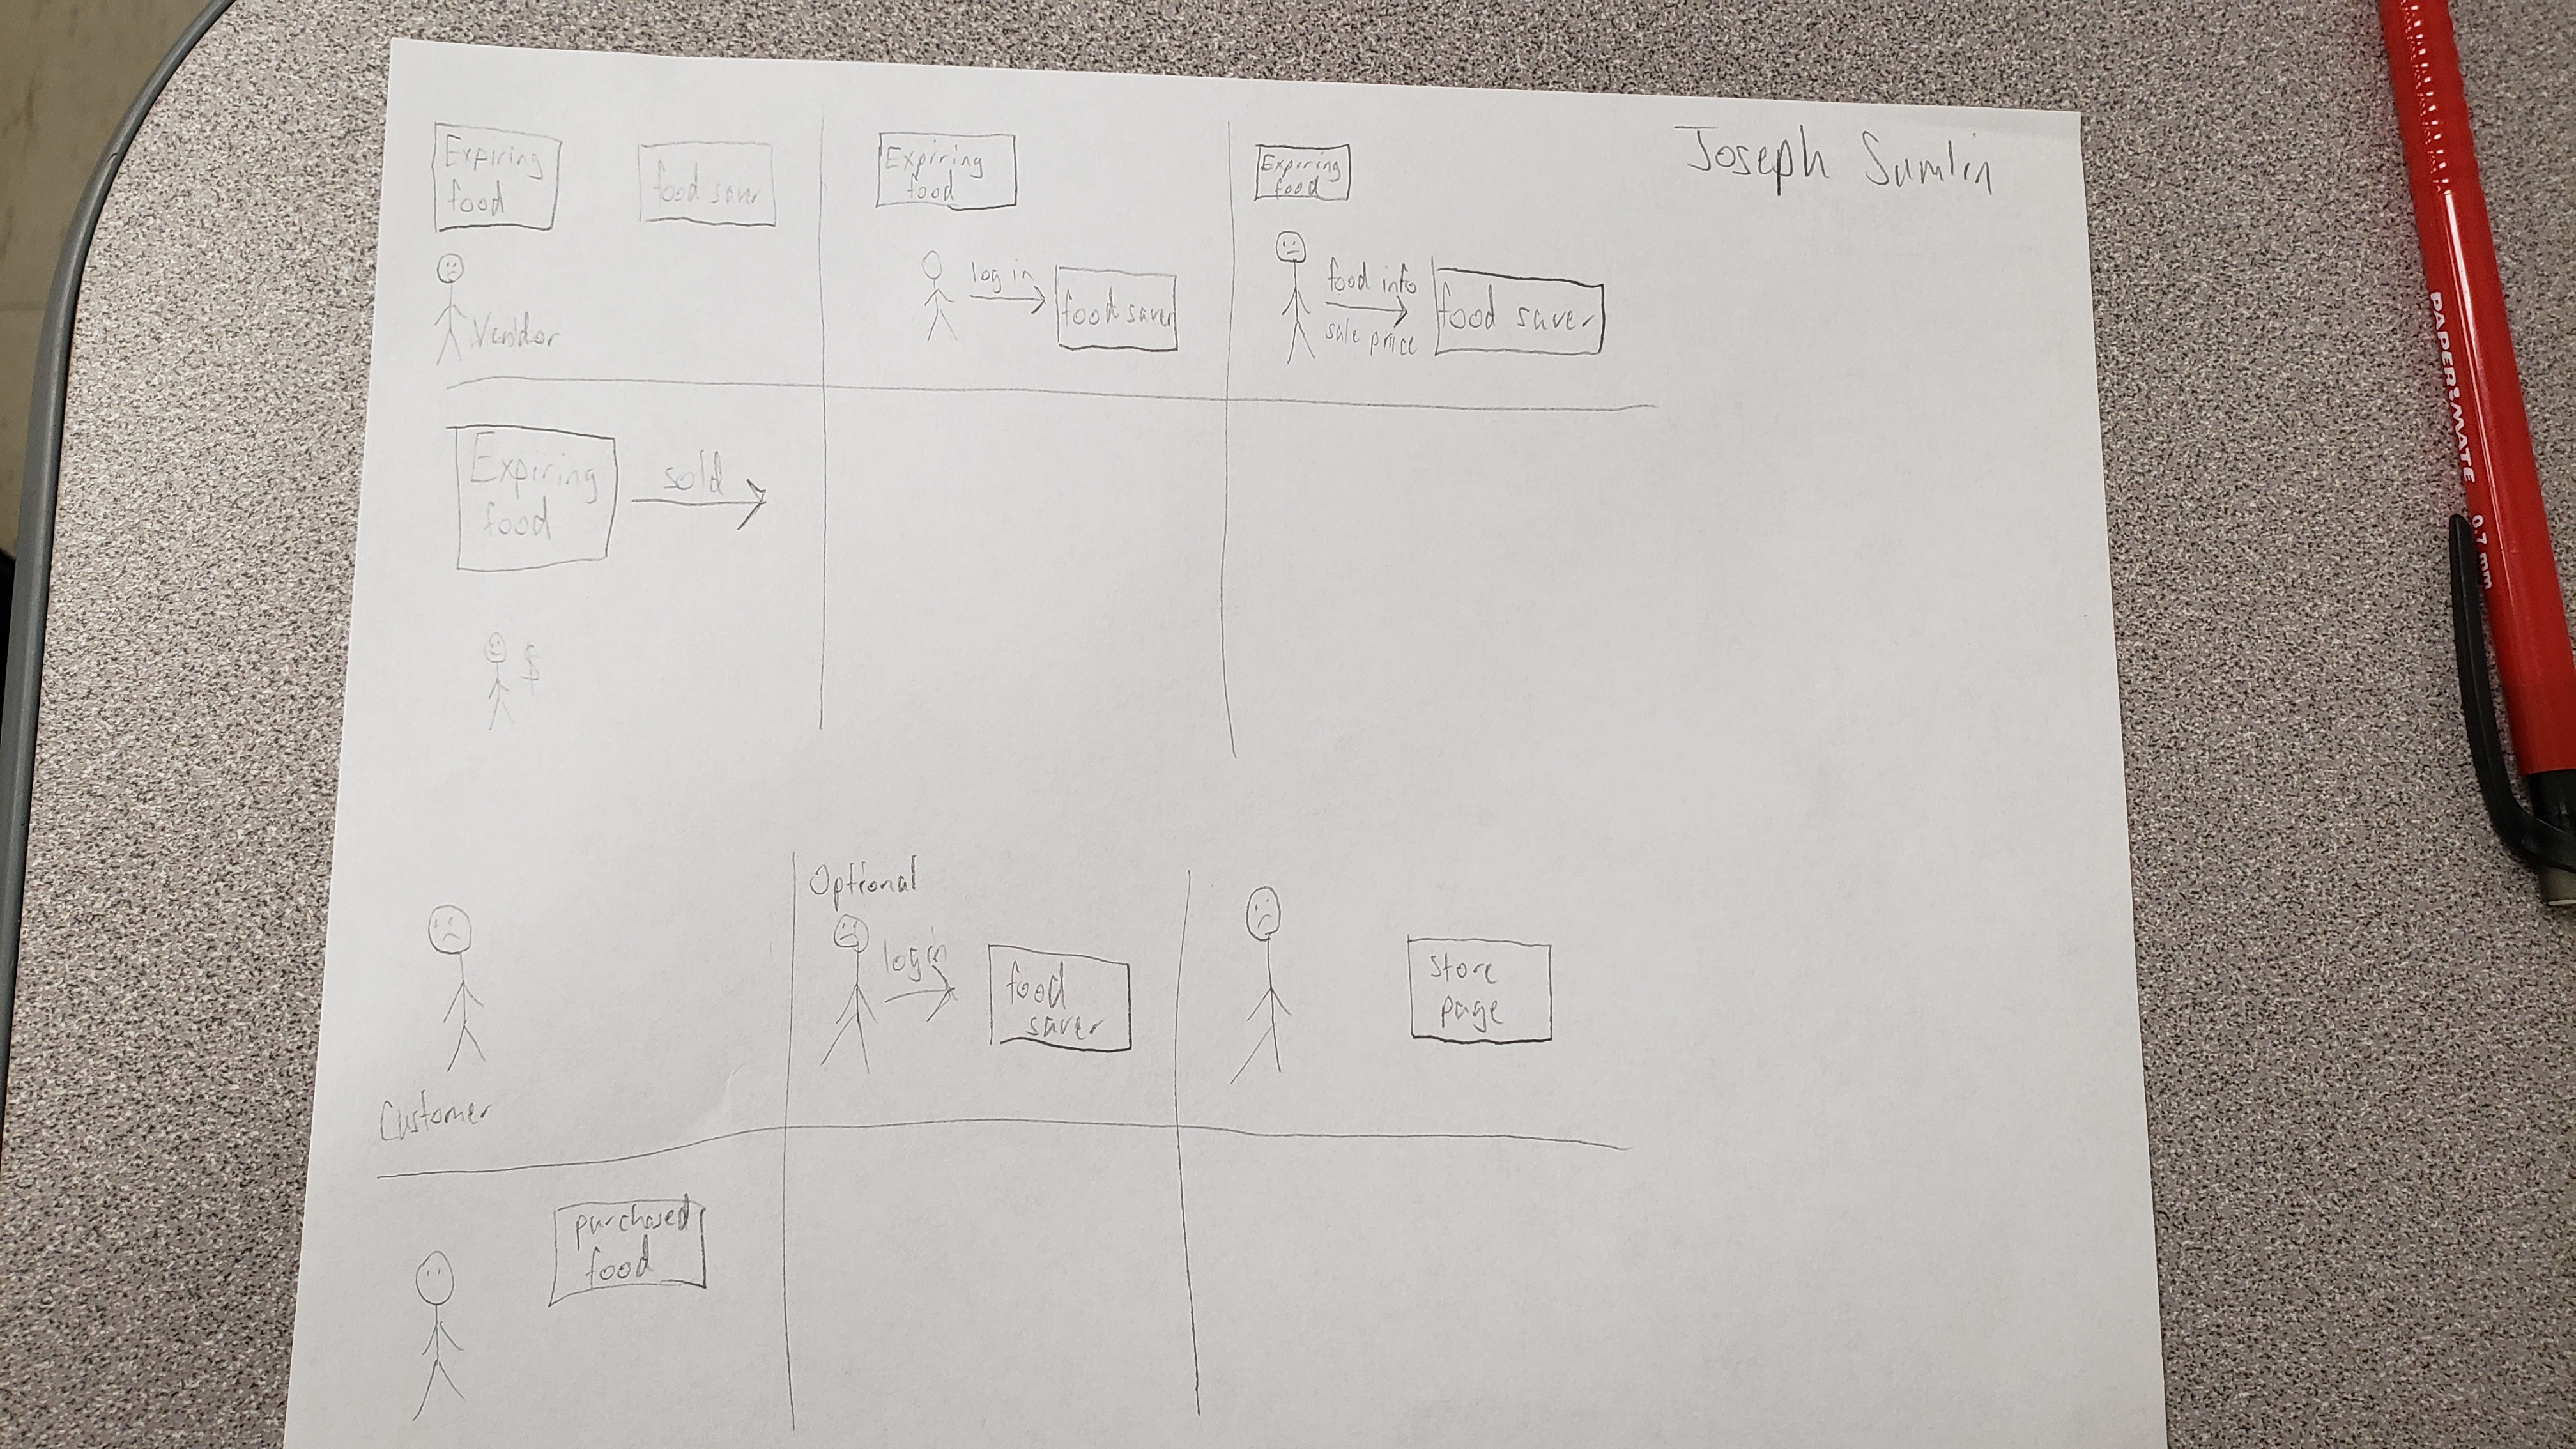 Joseph Sumlin
Expiring
food
food saver
Vendor
Expiring
food
log in
food saver
Expiring
food
food info
sale price
food saver
Expiring
food
sold
$
Customer
Optional
log in
food
saver
store
page
purchased
food
PAPER MATE
0.7 mm